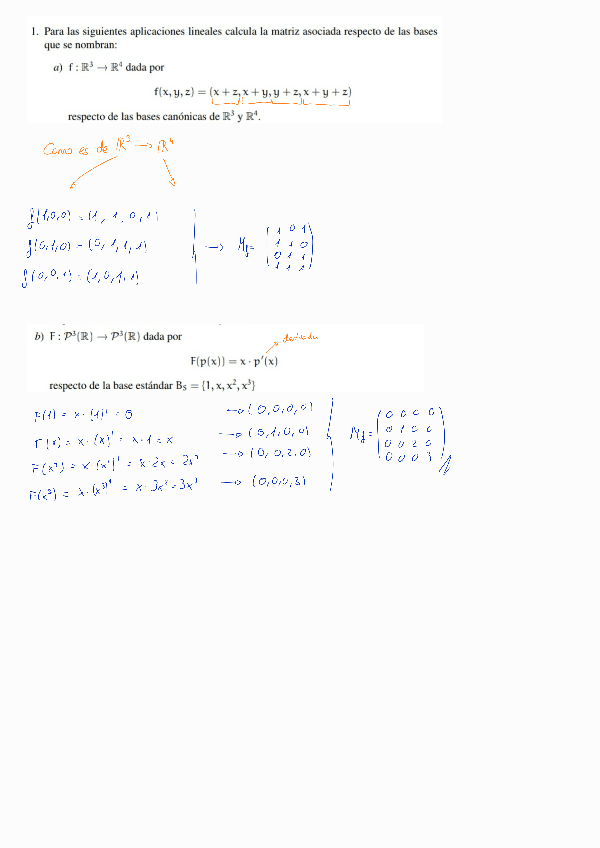 1. Para las siguientes aplicaciones lineales calcula la matriz asociada respecto de las bases
que se nombran:
a) f : ℝ³ → ℝ⁴ dada por
f(x, y, z) = (x + z, x + y, y + z, x + y + z)
respecto de las bases canónicas de ℝ³ y ℝ⁴.
Como es de ℝ³ → ℝ⁴
f(1,0,0) = (1, 1, 0, 1)
f(0,1,0) = (0, 1, 1, 1)
f(0,0,1) = (1,0,1,1)
→ M_f =
1 0 1
1 1 0
0 1 1
1 1 1
b) F : 𝒫³(ℝ) → 𝒫³(ℝ) dada por
derivada
F(p(x)) = x · p′(x)
respecto de la base estándar B_S = {1, x, x², x³}
F(1) = x · (1)' = 0 → (0,0,0,0)
F(x) = x · (x)' = x · 1 = x → (0,1,0,0)
F(x²) = x · (x²)' = x · 2x = 2x² → (0,0,2,0)
F(x³) = x · (x³)' = x · 3x² = 3x³ → (0,0,0,3)
M_f =
0 0 0 0
0 1 0 0
0 0 2 0
0 0 0 3